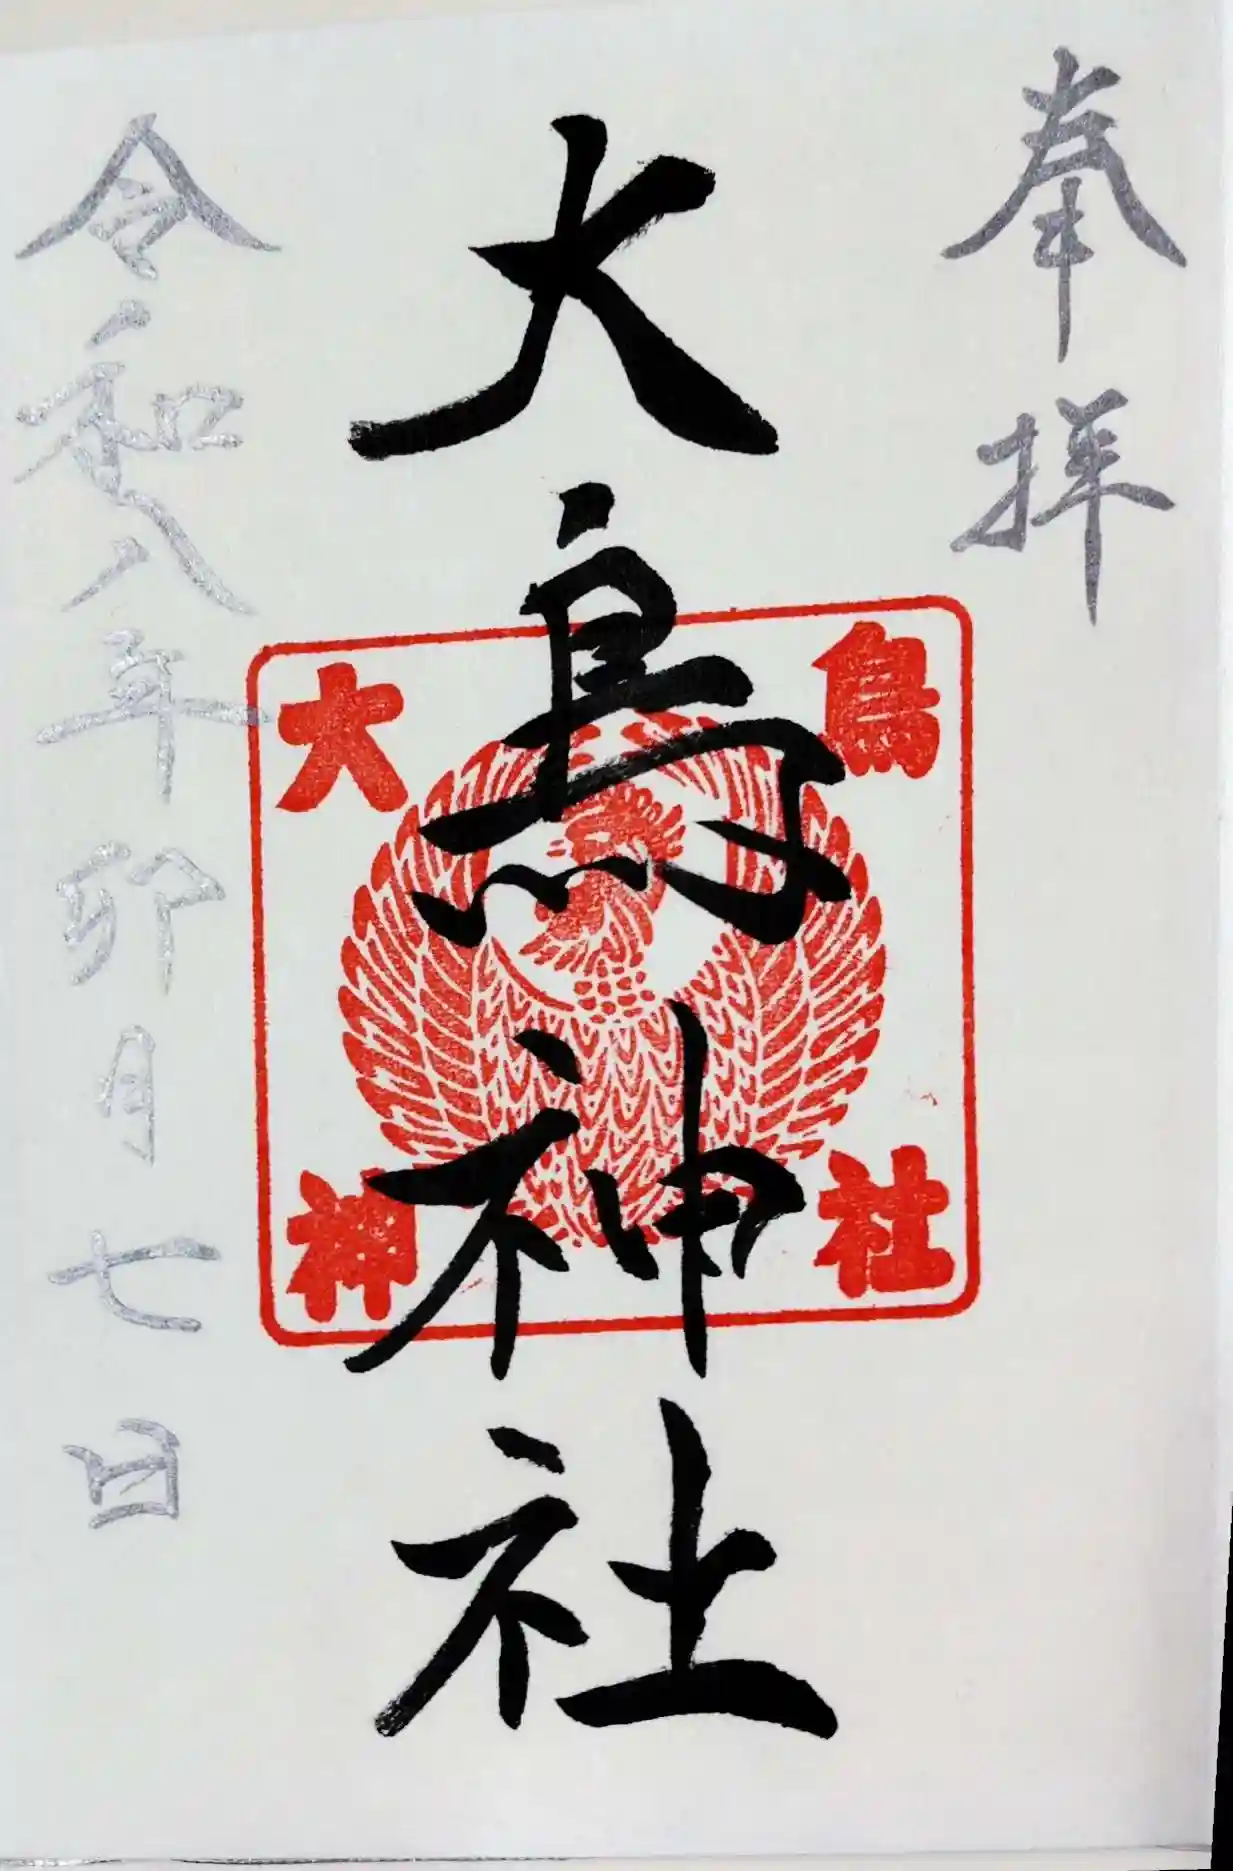 奉拝
大鳥神社
大鳥
神社
令和八年卯月七日